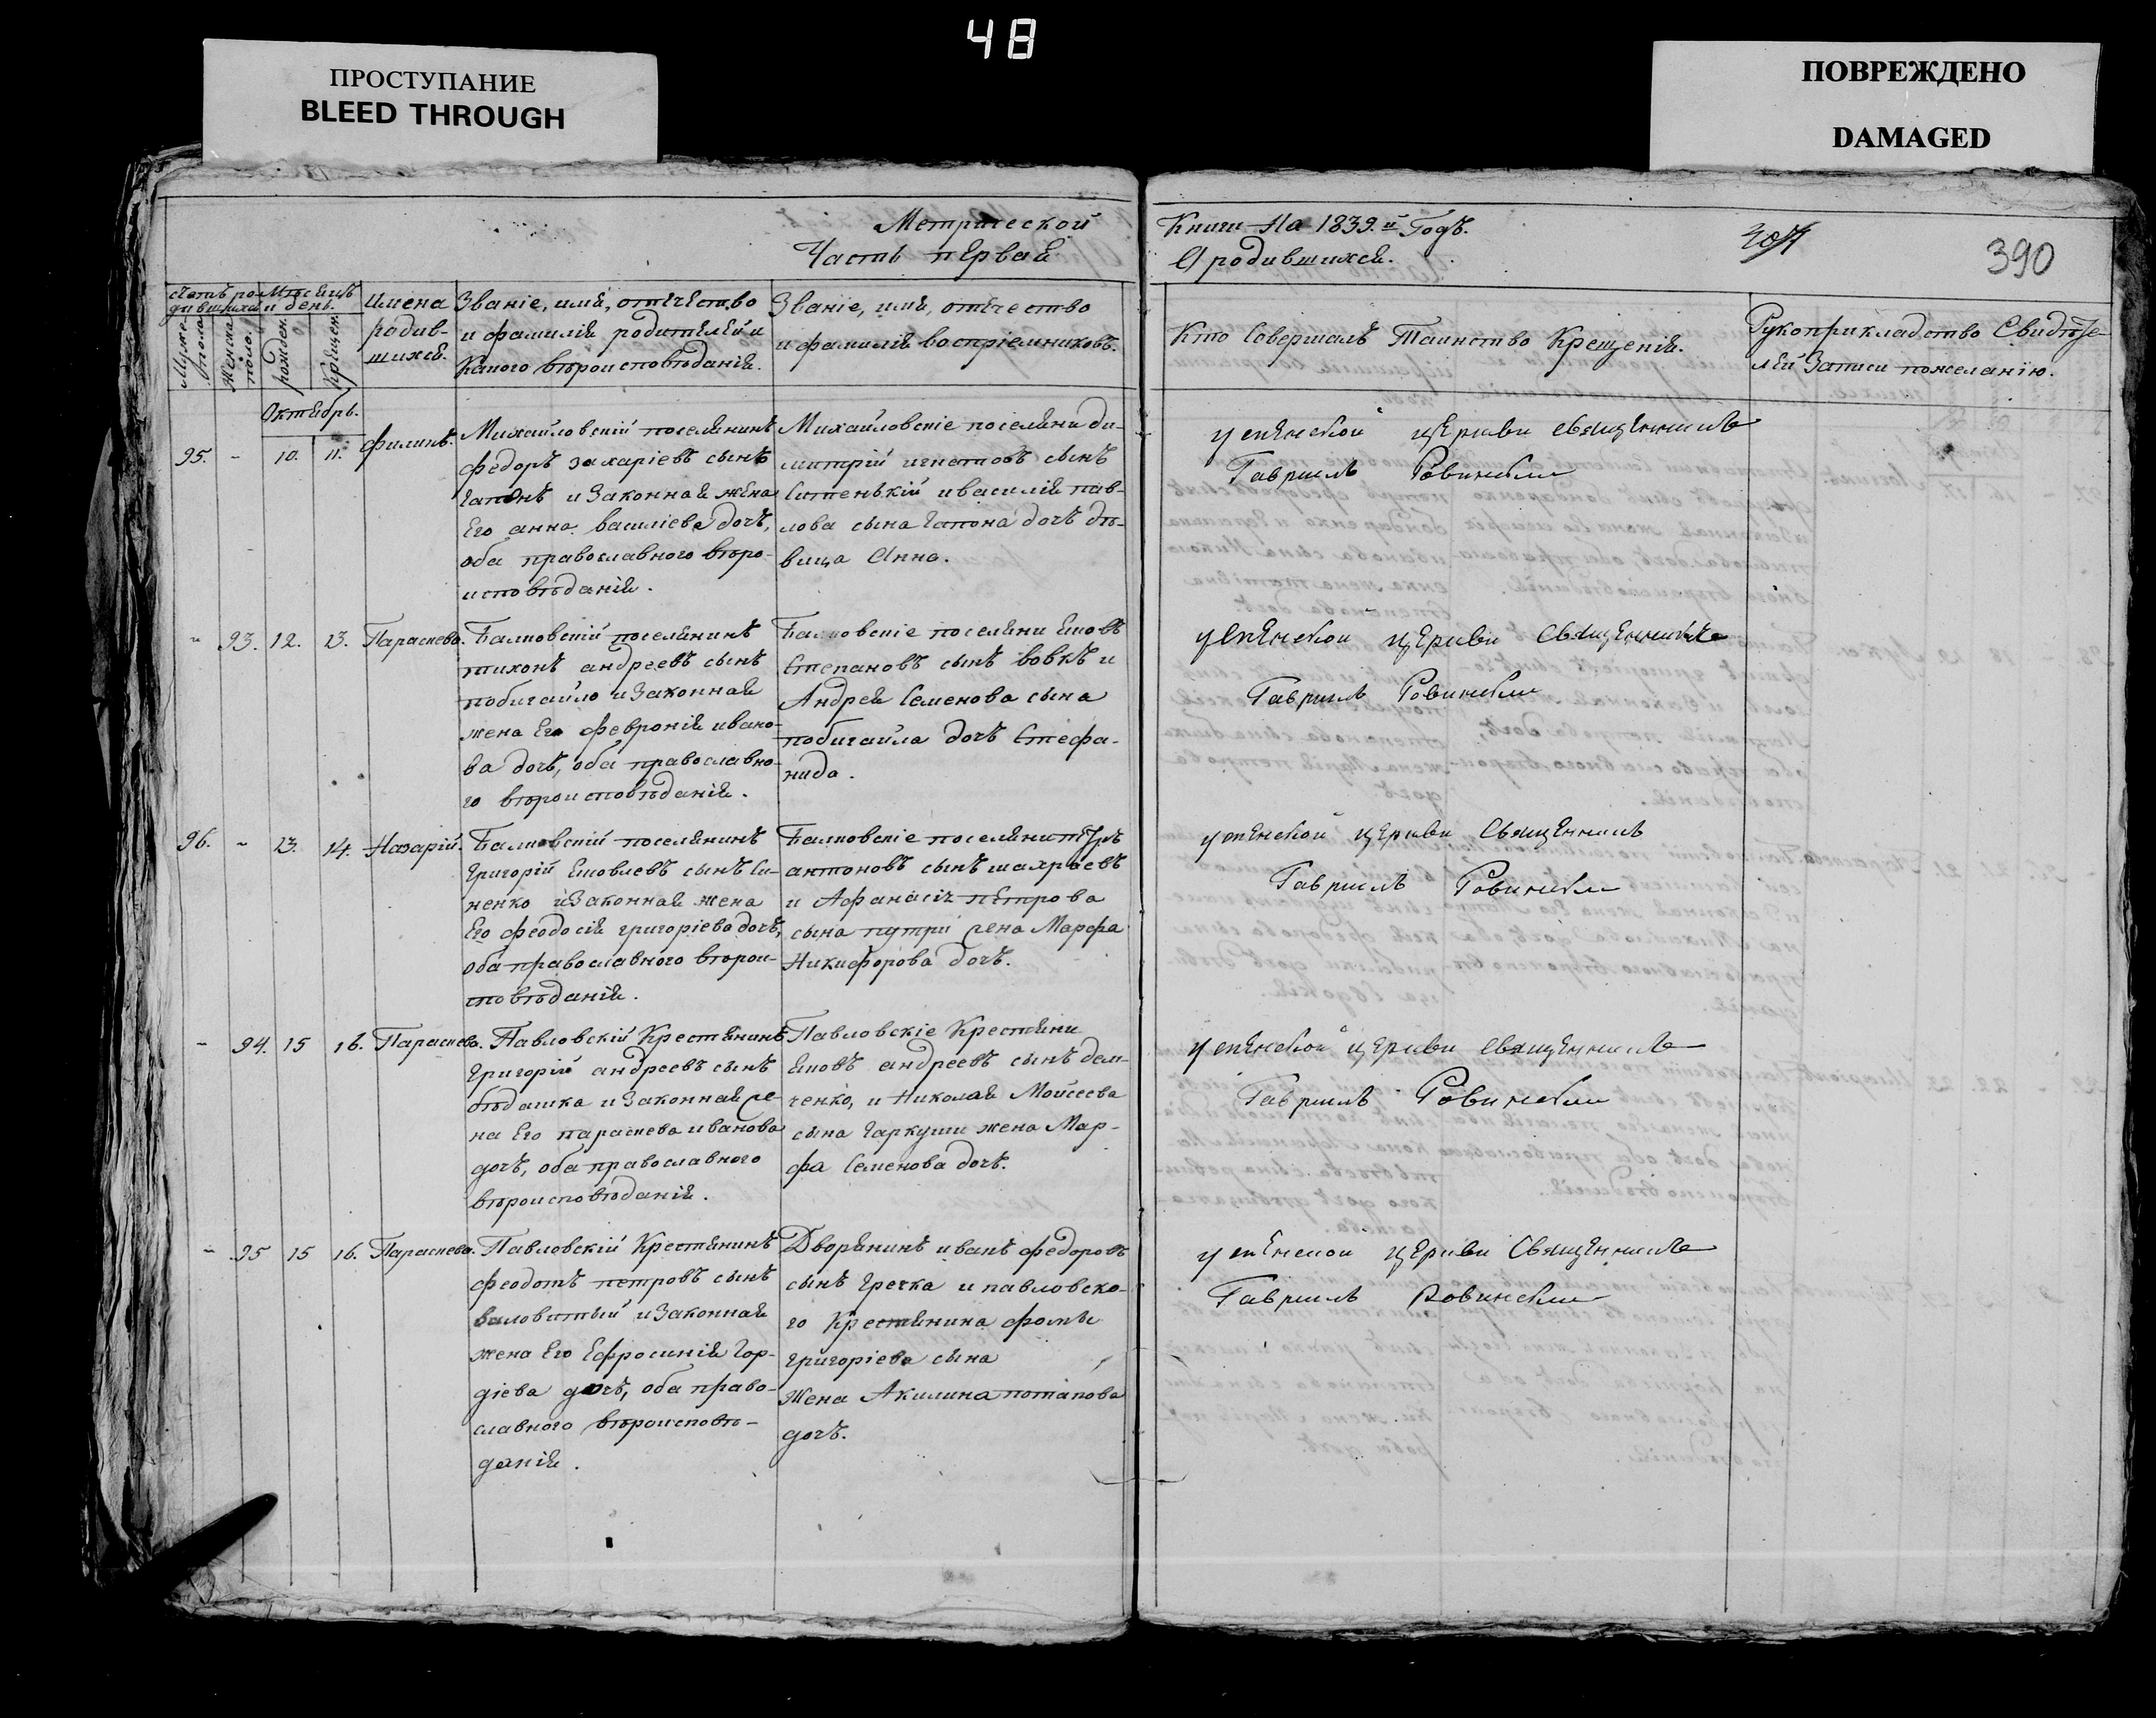 48
ПРОСТУПАНИЕ
BLEED THROUGH
ПОВРЕЖДЕНО
DAMAGED
Метрической
Часть первая
Книги На 1839.й Годъ.
О родившихся.
390
Счетъ родившихся
Мужеска пола.
Женска пола.
Мѣсяцъ и день.
рожден.
крещен.
Имена родив-
шихся.
Званіе, имя, отчество
и фамилія родителей и
какого вѣроисповѣданія.
Званіе, имя, отчество
и фамилія воспріемниковъ.
Кто Совершалъ Таинство Крещенія.
Рукоприкладство Свидѣте-
лей Записи по желанію.
Октябрь.
95. - 10. 11. Филипъ.
Михайловскій поселянинъ
Федоръ Захаріевъ сынъ
Гапонъ и Законная жена
Его Анна Василіева дочь,
оба православного вѣро-
исповѣданія.
Михайловскіе поселяни Ди-
митрій Игнатовъ сынъ
Ситенькій и Василія Пав-
лова сына Гапона дочь дѣ-
вица Анна.
Успенской церкви священникъ
Гавриилъ Ровинскій
" 93. 12. 13. Параскева.
Балковскій поселянинъ
Тихонъ Андреевъ сынъ
Побигайло и Законная
жена Его Февронія Ивано-
ва дочь, оба православно-
го вѣроисповѣданія.
Балковскіе поселяни Яковъ
Степановъ сынъ Вовкъ и
Андрея Семенова сына
Побигайла дочь Стефа-
нида.
Успенской церкви Священникъ
Гавриилъ Ровинскій
96. - 13. 14. Назарій.
Балковскій поселянинъ
Григорій Яковлевъ сынъ Си-
ненко и Законная жена
Его Феодосія Григоріева дочь,
оба православного вѣрои-
сповѣданія.
Балковскіе поселяни Петръ
Антоновъ сынъ Шахраевъ
и Афанасія Петрова
сына жена Марфа
Никифорова дочь.
Успенской церкви Священникъ
Гавриилъ Ровинскій
- 94. 15 16. Параскева.
Павловскій Крестянинъ
Григорій Андреевъ сынъ
Бѣдашка и Законная же-
на Его Параскева Иванова
дочь, оба православного
вѣроисповѣданія.
Павловскіе Крестяни
Яковъ Андреевъ сынъ Дем-
ченко, и Николая Мойсеева
сына Гаркуши жена Мар-
фа Семенова дочь.
Успенской церкви священникъ
Гавриилъ Ровинскій
- 95 15 16. Параскева.
Павловскій Крестянинъ
Феодотъ Петровъ сынъ
Виловитый и Законная
жена Его Ефросинія Гор-
діева дочь, оба право-
славного вѣроисповѣ-
данія.
Дворянинъ Иванъ Федоровъ
сынъ Гречка и Павловско-
го Крестянина Фомы
Григоріева сына
Жена Акилина Потапова
дочь.
Успенской церкви Священникъ
Гавриилъ Ровинскій